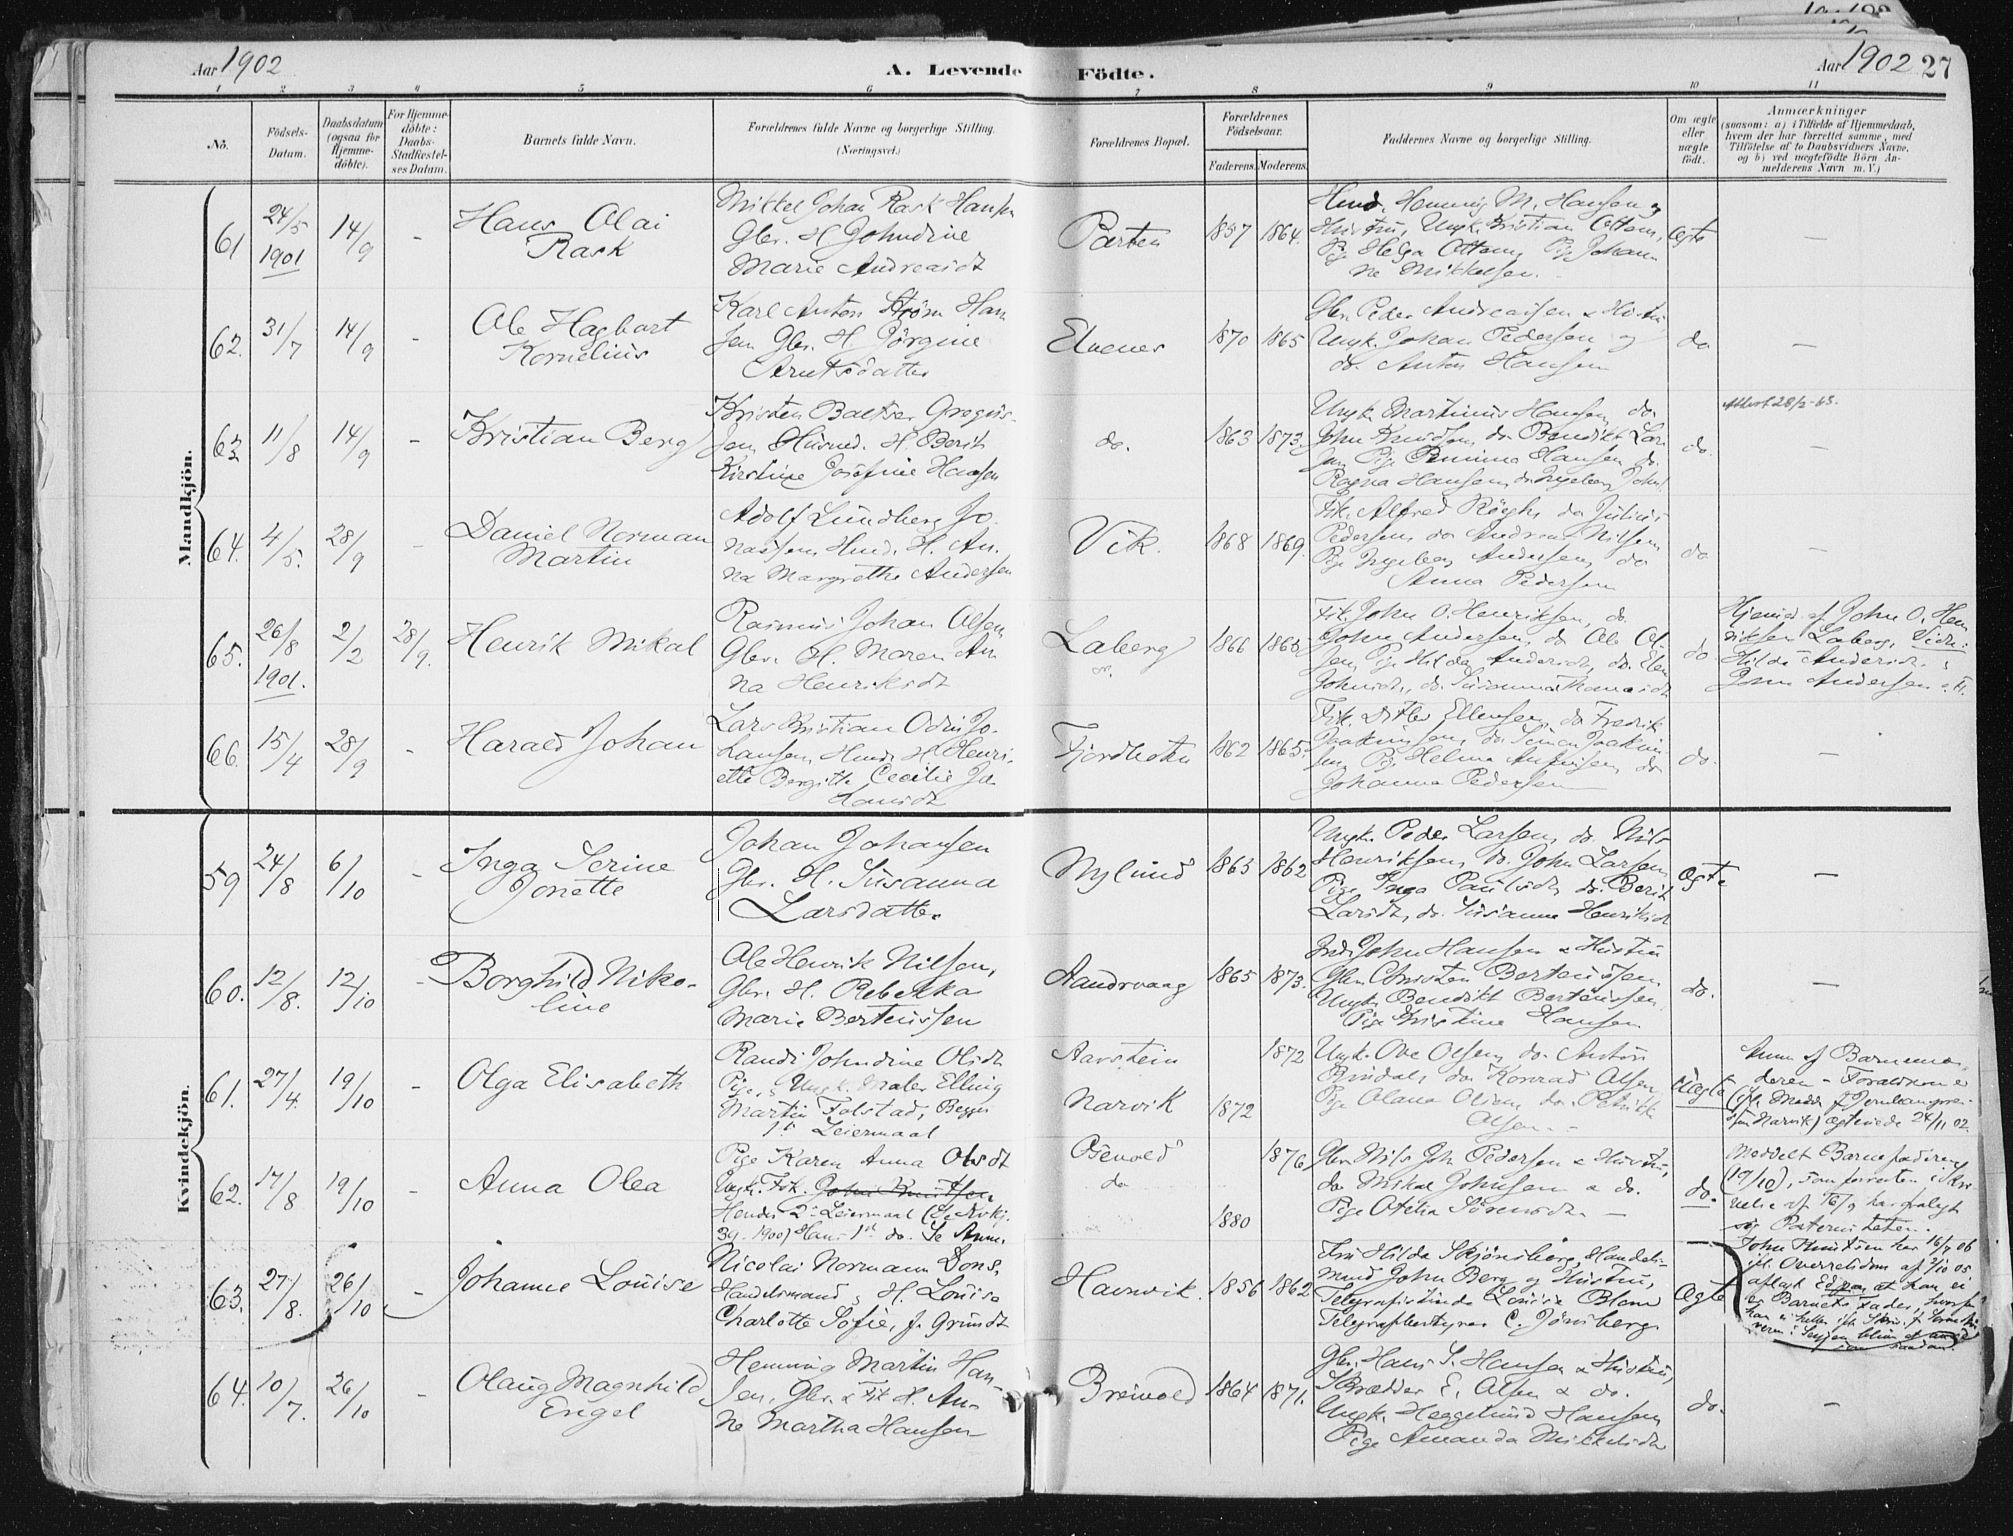 Aar 1902
A. Levende Födte.
Aar 1902 27
1 2 3 4 5 6 7 8 9 10 11
No.
Födsels-Datum.
Daabsdatum (ogsaa for Hjemme-döbte).
For Hjemme-döbte: Daabs-Stadfæstel-ses Datum.
Barnets fulde Navn.
Forældrenes fulde Navne og borgerlige Stilling.
(Næringsvei.)
Forældrenes Bopæl.
Forældrenes Födselsaar.
Faderens. Moderens.
Faddernes Navne og borgerlige Stilling.
Om ægte eller uægte födt.
Anmærkninger
(saasom: a) i Tilfælde af Hjemmedaab,
hvem der har forrettet samme, med
Tilföielse af to Daabsvidners Navne,
og b) ved uægtefödte Börn An-
melderens Navn m. V.)
Mandkjön.
61 24/5 1901 14/9 - Hans Olai Rask
Mikkel Johan Rask Hansen
Gbr. H. Johndine
Marie Andreasdt
Parten 1857 1864.
Hmd. Henning M. Hansen og
Hustru, Ungk. Kristian Ottem,
Pige Helga Ottem, Pige Johan
ne Mikkelsen.
Ægte —
62. 31/7 14/9 - Ole Hagbart Kornelius
Karl Anton Strøm Han
sen Gbr. H. Jørgine
Arntsdatter
Elvenes 1870 1865
Gbr. Peder Andreassen & Hustru
Ungk. Johan Pedersen og
do. Anton Hansen
do —
63 11/8 14/9 - Kristian Berg
Kristen Baltser Gregus-
sen Husmd. H. Berit
Kirstine Josefine Hansen
do. 1863 1873.
Ungk. Martinus Hansen, do.
John Knudsen, do Bendikt Lar
sen Pige Pernima Hansen do.
Ragna Hansen, do Ingeborg Johns.
do. —
64. 4/5. 28/9 - Daniel Norman Martin
Adolf Lundberg Jo.
nassen Hmd. H. An.
na Margrethe Andersen
Vik. 1868 1869.
Fik. Alfred Røgh, do Julius
Pedersen, do Andreas Nilsen
Pige Ingeborg Andersen, do
Anna Pedersen
do —
65. 26/8 1901. 2/2 28/9. Henrik Mikal
Rasmus Johan Olsen
Gbr. H. Maren An
na Henriksdt
Laberg 1866
Fik. John O. Henriksen, do.
John Andersen, do Ole Ol.
sen, Pige Hilda Andersdt, do. Elen
Johnsdt, do. Susanna
do
Hjemd. af John O. Hen
riksen Laberg. Vidn:
Hilda Andersdt. &
John Andersen
66. 15/4 28/9 - Harald Johan
Lars Kristian Odin Jo.
hansen, Hmd. H. Henri-
ette Bergitte Cecilie Jo
hansdt
Fjordbotn 1862 1865.
Fik. Ditlev Ellingsen, do Fredrik
Joakimsen, do. Simon Joakim
sen Pige Helma do
Johanna Pedersen
do. —
Kvindekjön.
59 24/8 6/10 - Inga Serine Jonette
Johan Johansen
Gbr. H. Susanna
Larsdatter
Nylund 1863 1862
Ungk. Peder Larsen, do. Nils
Henriksen, do. John Larsen,
Pige Inga Paulsdt, do. Berit
Larsdt, do. Susanne Henriksdt
Ægte —
60. 12/8. 12/10 - Borghild Niko-line
Ole Henrik Nilsen,
Gbr. H. Rebekka
Marie Berteussen
Aandervaag 1865 1873.
John Hansen & Hustru
Gbr. Christen Berteussen
Ungk. Bendikt Berteussen,
Pige Kristine Hansen
do. —
61. 27/4. 19/10 - Olga Elisabeth
Randi Johndine Olsdt
Pige, & Ungk. Maler Elling
Martin Folstad, Begges
1ste Leiermaal
Aarstein 1872
Narvik 1872
Ungk. Ove Olsen, do. Anton
Bindal, do Konrad Olsen,
Pige Olana Olsen, do. Petrikke
Olsen. -
Uægte
Anm. af Barnemo-
deren - Forældrene
ægteviede 24/11 02.
62. 17/8 19/10 - Anna Olea
Pige Karen Anna Olsdt
Ungk. Fik. John Knutsen
Hendes 2det Leiermaal
39. 1900) Hans 1ste do. Se Anm.
Øsevold 1876
do 1880
Gbr. Nils Joh. Pedersen & Hustru,
do Mikal Johnsen & do.
Pige Otelia Sørensdt. —
do.
Meddelt Barnefaderen
(19/10), som forresten i Skri
velse af 16/9 har fralagt
sig Paterniteten.
John Knutsen har 16/7 06
ifl. Overretsdom af 9/10 05
aflagt Ed paa at han ei
er Barnets Fader,
63. 27/8. 26/10 - Johanne Louise
Nicolai Normann Dons,
Handelsmand, & H. Louise
Charlotte Sofie, f. Grundt
Havnvik. 1856 1862
Fru Hilda Skjønsberg, Handels-
mand John Berg og Hustru,
Telegrafistinde Louise Blom
Telegrafbestyrer C. Jønsberg
Ægte
64. 10/7. 26/10 - Olaug Magnhild Engel
Henning Martin Han-
sen, Gbr. & Fik H. An-
ne Martha Hansen
Breivold 1864 1871.
Gbr. Hans S. Hansen & Hustru,
Skrædder E. Olsen & do.
Ungk. Heggelund Hansen,
Pige Amanda Mikkelsdt
do. —